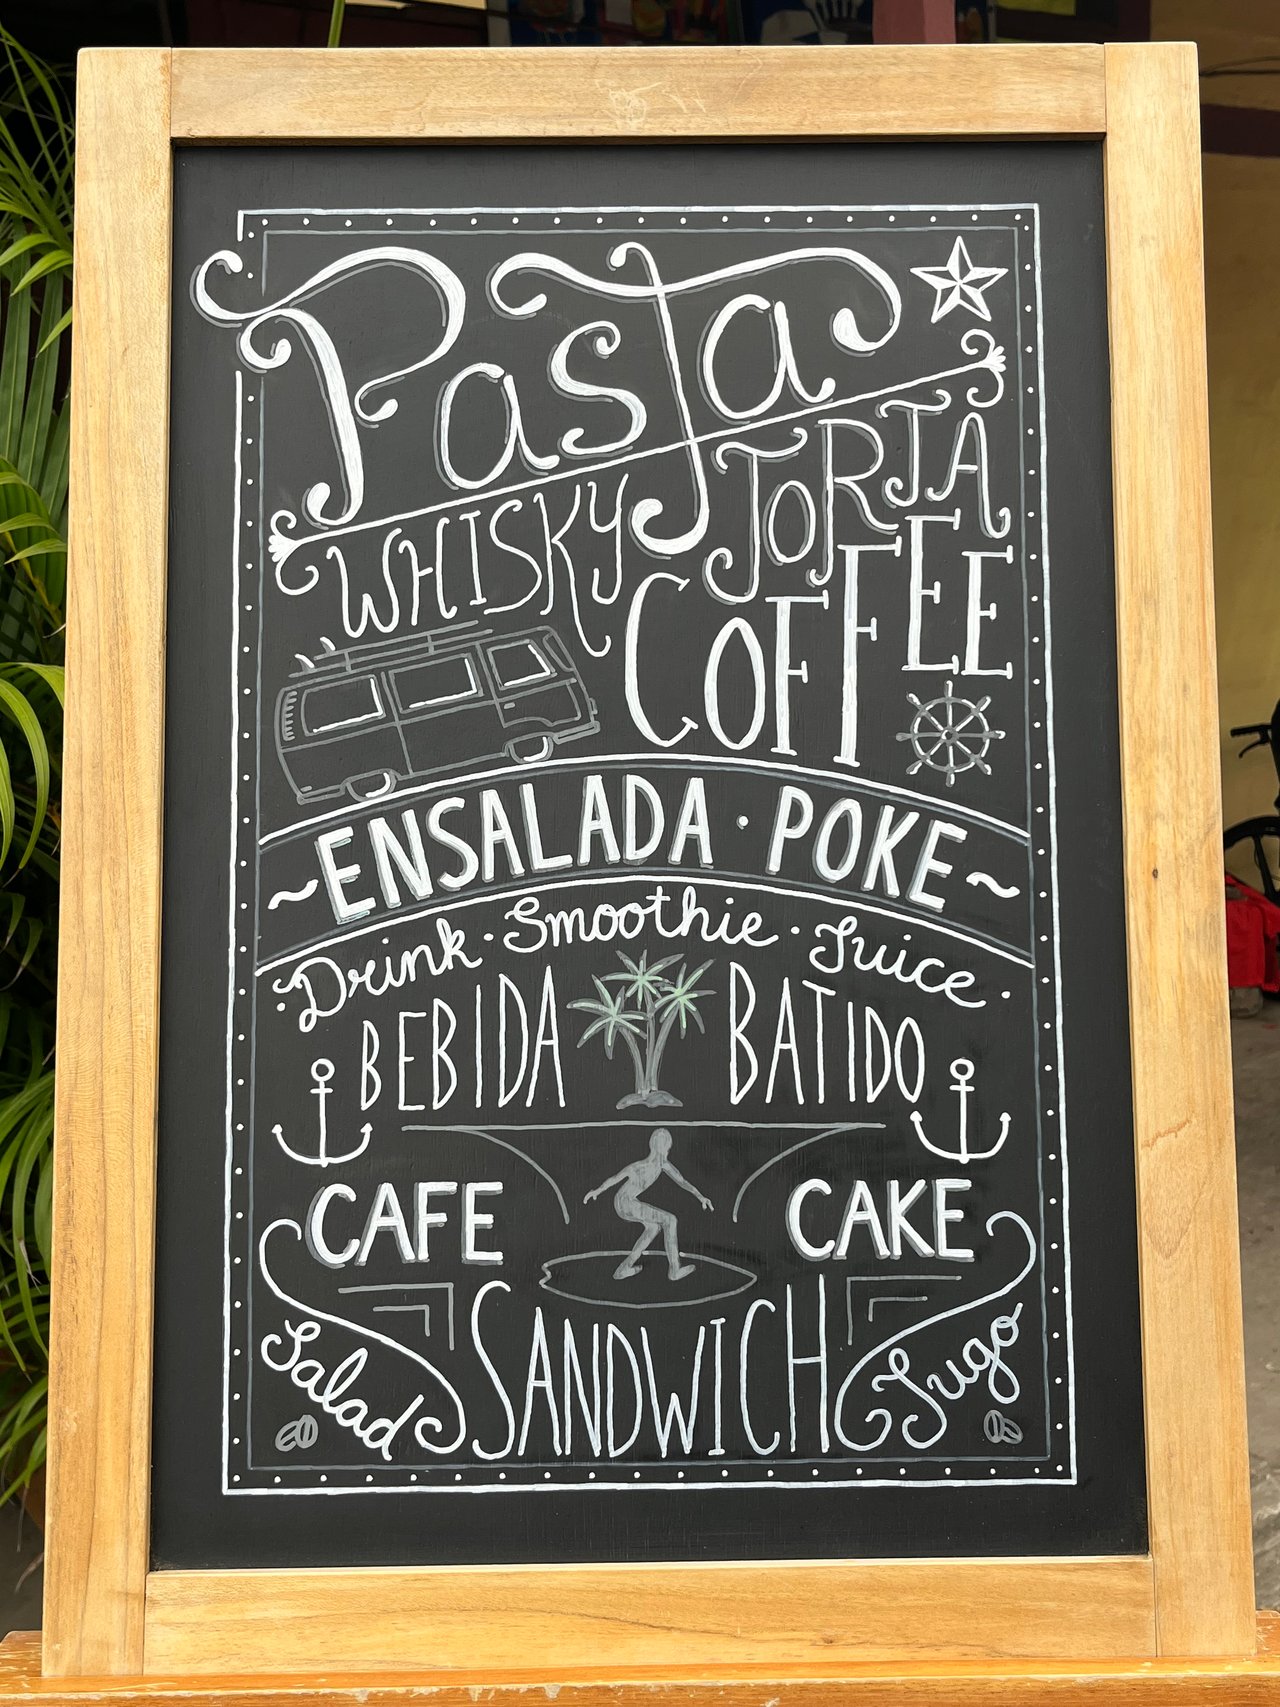 Pasta
WHISKY TORTA
COFFEE
~ENSALADA · POKE~
· Drink · Smoothie · Juice ·
BEBIDA BATIDO
CAFE CAKE
Salad SANDWICH Jugo